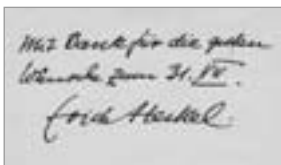 Mit Dank für die guten
Wünsche zum 31. VII.
Erich Heckel